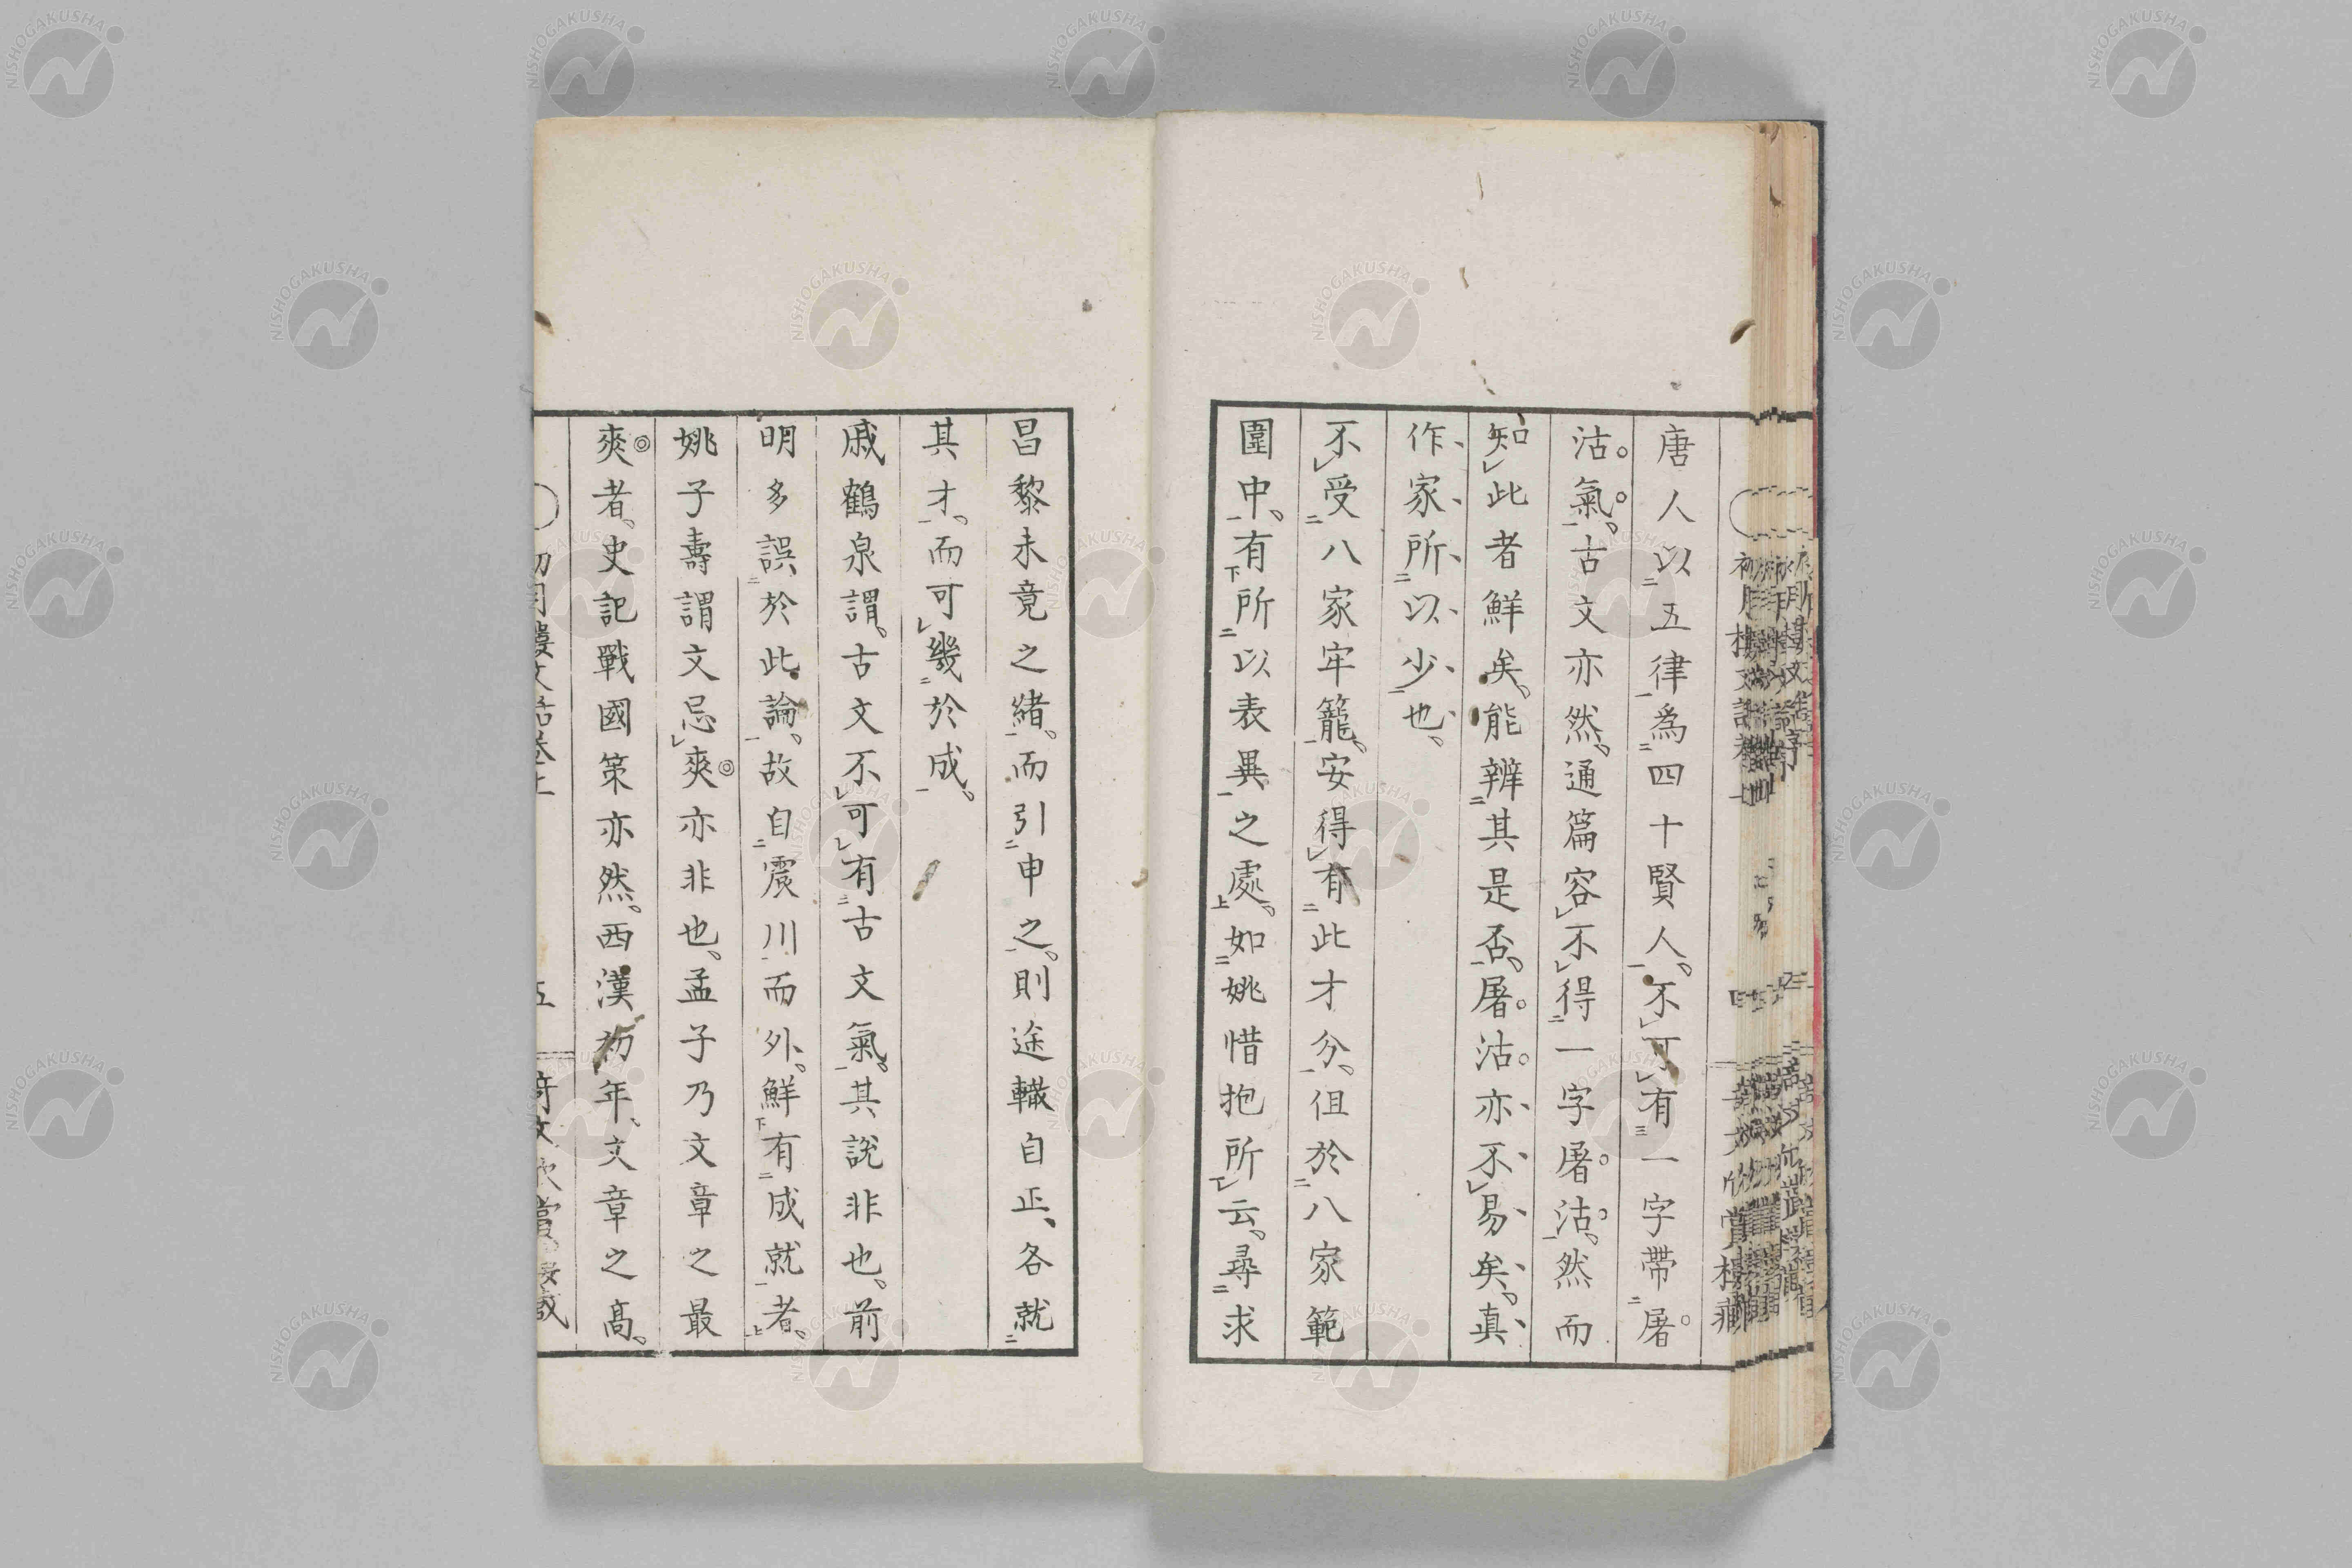 唐人以五律爲四十賢人、不可有一字帶屠
沽氣、古文亦然、通篇容不得一字屠沽、然而
知此者鮮矣、能辨其是否、屠沽亦不易矣、真
作家所以少也、
不受八家牢籠、安得有此才分、但於八家範
圍中、有所以表異之處、如姚惜抱所云、尋求
昌黎未竟之緒、而引申之、則途轍自正、各就
其才、而可幾於成、
戚鶴泉謂、古文不可有古文氣、其說非也、前
明多誤於此論、故自震川而外、鮮有成就者、
姚子壽謂文忌爽亦非也、孟子乃文章之最
爽者、史記戰國策亦然、西漢初年、文章之高、
五
NISHOGAKUSHA